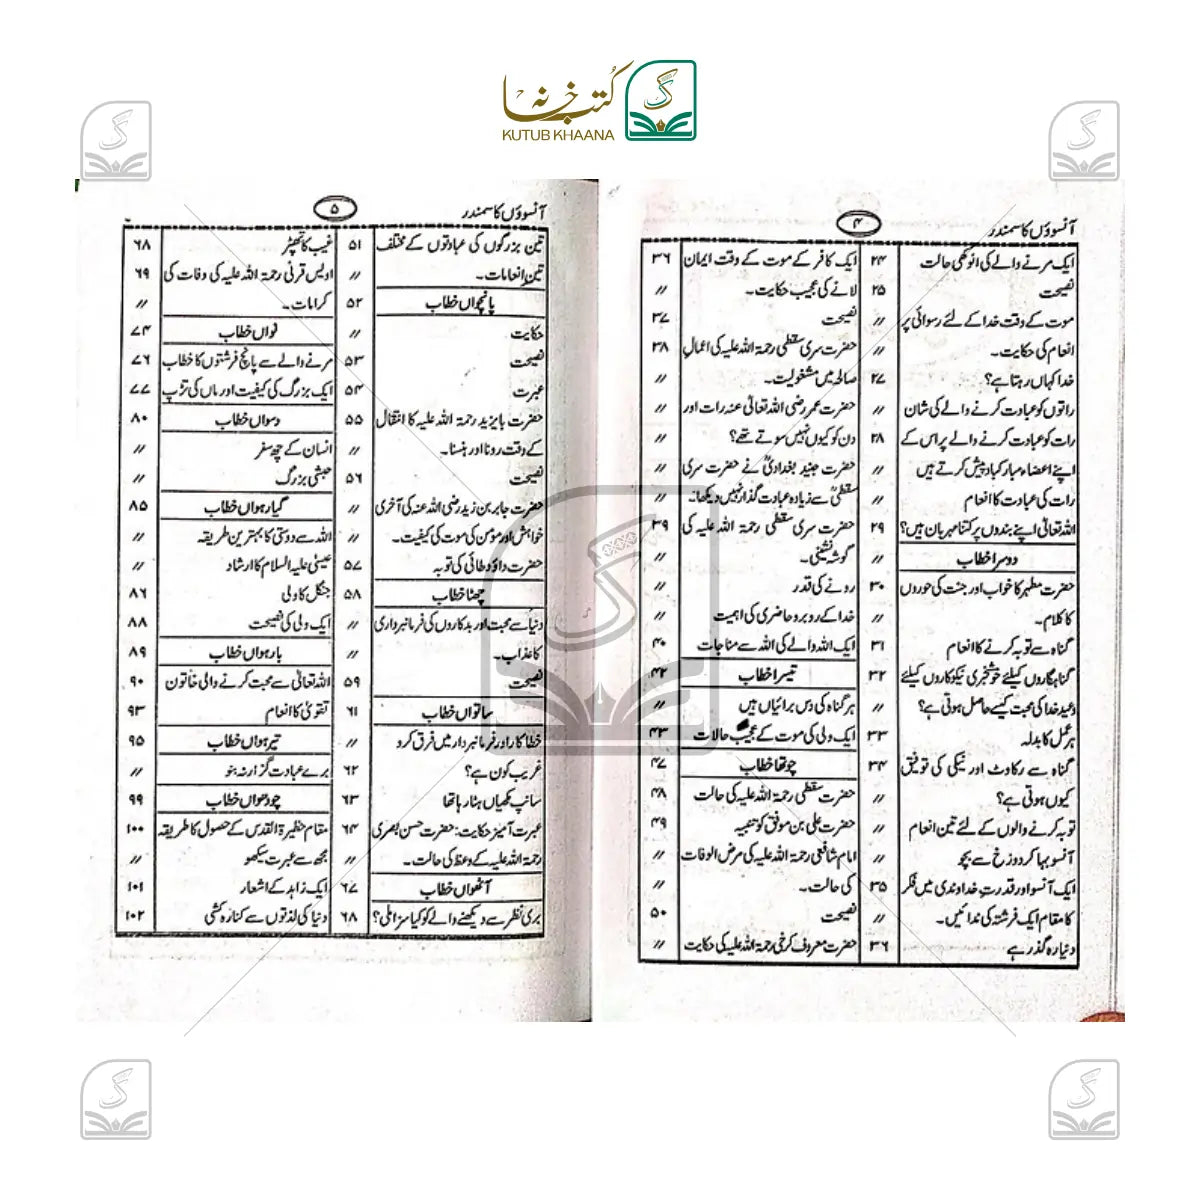 کتب خانہ
KUTUB KHAANA
آنسوؤں کا سمندر
۴
ایک مرنے والے کی انوکھی حالت ۲۴
نصیحت ۲۵
موت کے وقت خدا کے لئے رسوائی پر 〃
انعام کی حکایت۔ 〃
خدا کہاں رہتا ہے؟ ۲۷
راتوں کو عبادت کرنے والے کی شان 〃
رات کو عبادت کرنے والے پر اس کے ۲۸
اپنے اعضاء مبارکباد پیش کرتے ہیں 〃
رات کی عبادت کا انعام 〃
اللہ تعالیٰ اپنے بندوں پر کتنا مہربان ہیں؟ ۲۹
دوسرا خطاب 〃
حضرت مطہر کا خواب اور جنت کی حوروں ۳۰
کا کلام۔ 〃
گناہ سے توبہ کرنے کا انعام ۳۱
گناہگاروں کیلئے خوشخبری نیکوکاروں کیلئے ۳۲
وعید خدا کی محبت کیسے حاصل ہوتی ہے؟ 〃
ہر عمل کا بدلہ ۳۳
گناہ سے رکاوٹ اور نیکی کی توفیق ۳۴
کیوں ہوتی ہے؟ 〃
توبہ کرنے والوں کے لئے تین انعام 〃
آنسو بہا کر دوزخ سے بچو 〃
ایک آنسو اور قدرتِ خداوندی میں فکر ۳۵
کا مقام ایک فرشتہ کی ندائیں۔ 〃
دنیا رہ گذر ہے ۳۶
ایک کافر کے موت کے وقت ایمان ۳۶
لانے کی عجیب حکایت۔ 〃
نصیحت ۳۷
حضرت سری سقطی رحمۃ اللہ علیہ کی اعمالِ ۳۸
صالحہ میں مشغولیت۔ 〃
حضرت عمر رضی اللہ تعالیٰ عنہ رات اور 〃
دن کو کیوں نہیں سوتے تھے؟ 〃
حضرت جنید بغدادیؒ نے حضرت سری 〃
سقطیؒ سے زیادہ عبادت گذار نہیں دیکھا۔ 〃
حضرت سری سقطی رحمۃ اللہ علیہ کی ۳۹
گوشہ نشینی۔ 〃
رونے کی قدر 〃
خدا کے روبرو حاضری کی اہمیت 〃
ایک اللہ والے کی اللہ سے مناجات ۴۰
تیسرا خطاب ۴۲
ہر گناہ کی دس برائیاں ہیں 〃
ایک ولی کی موت کے عجیب حالات ۴۳
چوتھا خطاب ۴۷
حضرت سقطی رحمۃ اللہ علیہ کی حالت ۴۸
حضرت علی بن موفق کو تنبیہ ۴۹
امام شافعی رحمۃ اللہ علیہ کی مرض الوفات 〃
کی حالت۔ 〃
نصیحت ۵۰
حضرت معروف کرخی رحمۃ اللہ علیہ کی حکایت 〃
آنسوؤں کا سمندر
۵
تین بزرگوں کی عبادتوں کے مختلف ۵۱
تین انعامات۔ 〃
پانچواں خطاب ۵۲
حکایت 〃
نصیحت ۵۳
عبرت ۵۴
حضرت بایزید رحمۃ اللہ علیہ کا انتقال ۵۵
کے وقت رونا اور ہنسنا۔ 〃
نصیحت ۵۶
حضرت جابر بن زید رضی اللہ عنہ کی آخری 〃
خواہش اور مومن کی موت کی کیفیت۔ 〃
حضرت داؤد طائی کی توبہ ۵۷
چھٹا خطاب ۵۸
دنیا سے محبت اور بدکاروں کی فرمانبرداری 〃
کا عذاب۔ 〃
نصیحت ۵۹
ساتواں خطاب ۶۱
خطا کار اور فرمانبردار میں فرق کرو 〃
غریب کون ہے؟ ۶۲
سانپ مکھیاں ہٹا رہا تھا ۶۳
عبرت آمیز حکایت: حضرت حسن بصری ۶۴
رحمۃ اللہ علیہ کے وعظ کی حالت۔ 〃
آٹھواں خطاب ۶۷
بری نظر سے دیکھنے والے کو کیا سزا ملی؟ ۶۸
غیب کا تھپڑ ۶۸
اویس قرنی رحمۃ اللہ علیہ کی وفات کی ۶۹
کرامات۔ 〃
نواں خطاب ۷۴
مرنے والے سے پانچ فرشتوں کا خطاب ۷۶
ایک بزرگ کی کیفیت اور ماں کی تڑپ ۷۷
دسواں خطاب ۸۰
انسان کے چھ سفر 〃
حبشی بزرگ 〃
گیارہواں خطاب ۸۵
اللہ سے دوستی کا بہترین طریقہ 〃
عیسیٰ علیہ السلام کا ارشاد 〃
جنگل کا ولی ۸۶
ایک ولی کی نصیحت ۸۸
بارہواں خطاب ۸۹
اللہ تعالیٰ سے محبت کرنے والی خاتون ۹۰
تقویٰ کا انعام ۹۳
تیرہواں خطاب ۹۵
برے عبادت گزار نہ بنو 〃
چودھواں خطاب ۹۹
مقام حظیرۃ القدس کے حصول کا طریقہ ۱۰۰
مجھ سے عبرت سیکھو 〃
ایک زاہد کے اشعار ۱۰۱
دنیا کی لذتوں سے کنارہ کشی ۱۰۲